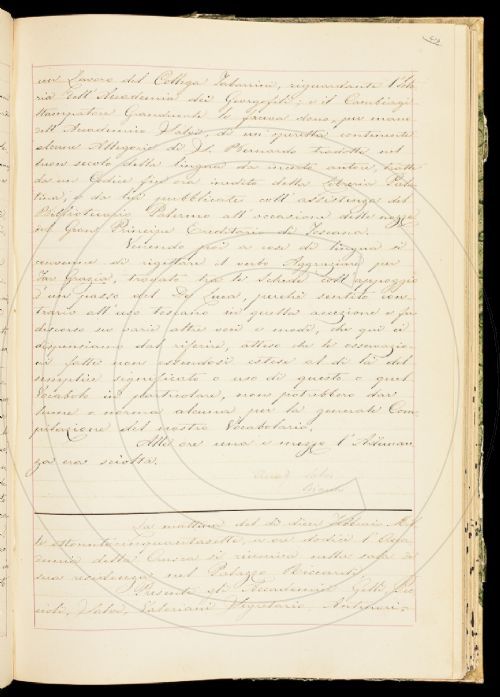 un Lavoro del Collega Tabarrini, riguardante l'Isto-
ria dell'Accademia dei Georgofili; e il Cambiagi
Stampatore Granducale le faceva dono, per mano
dell'Accademico Valori, di un operetta continente
alcune Allegorie di S. Bernardo tradotte nel
buon secolo della lingua da incerto autore, tratte
da un Codice fin ora inedito della Libreria Pala-
tina, e da lui pubblicate coll'assistenza del
Bibliotecario Palermo all'occasione delle nozze
del Gran Principe Ereditario di Toscana.
Venendo poi a cose di lingua si
convenne di rigettare il verbo Aggraziare per
Far Grazia, trovato tra le Schede coll'appoggio
d'un passo del De Luca, perchè sentito con-
trario all'uso toscano in quella accezione e fu
discorso su varie altre voci e modi, che qui ci
dispensiamo dal riferire, atteso che le osservazio-
ni fatte non essendosi estese al di là del
semplice significato o uso di questo o quel
Vocabolo in particolare, non potrebbero dar
lume o norma alcuna per la generale Com-
pilazione del nostro Vocabolario.
Alle ore una e mezzo l'Adunan-
za era sciolta.
La mattina del dì dieci Febbraio Mil-
le ottocentocinquantasette, a ore dodici l'Acca-
demia della Crusca si riuniva nella sala di
sua residenza nel Palazzo Riccardi.
Presenti gli Accademici
Segretario,